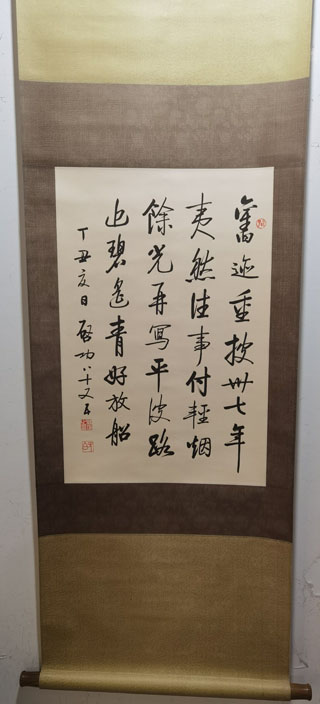 舊迹重披卅七年
夷然往事付輕烟
餘光再寫平波路
近碧遙青好放船
丁丑夏日 啓功八十又五